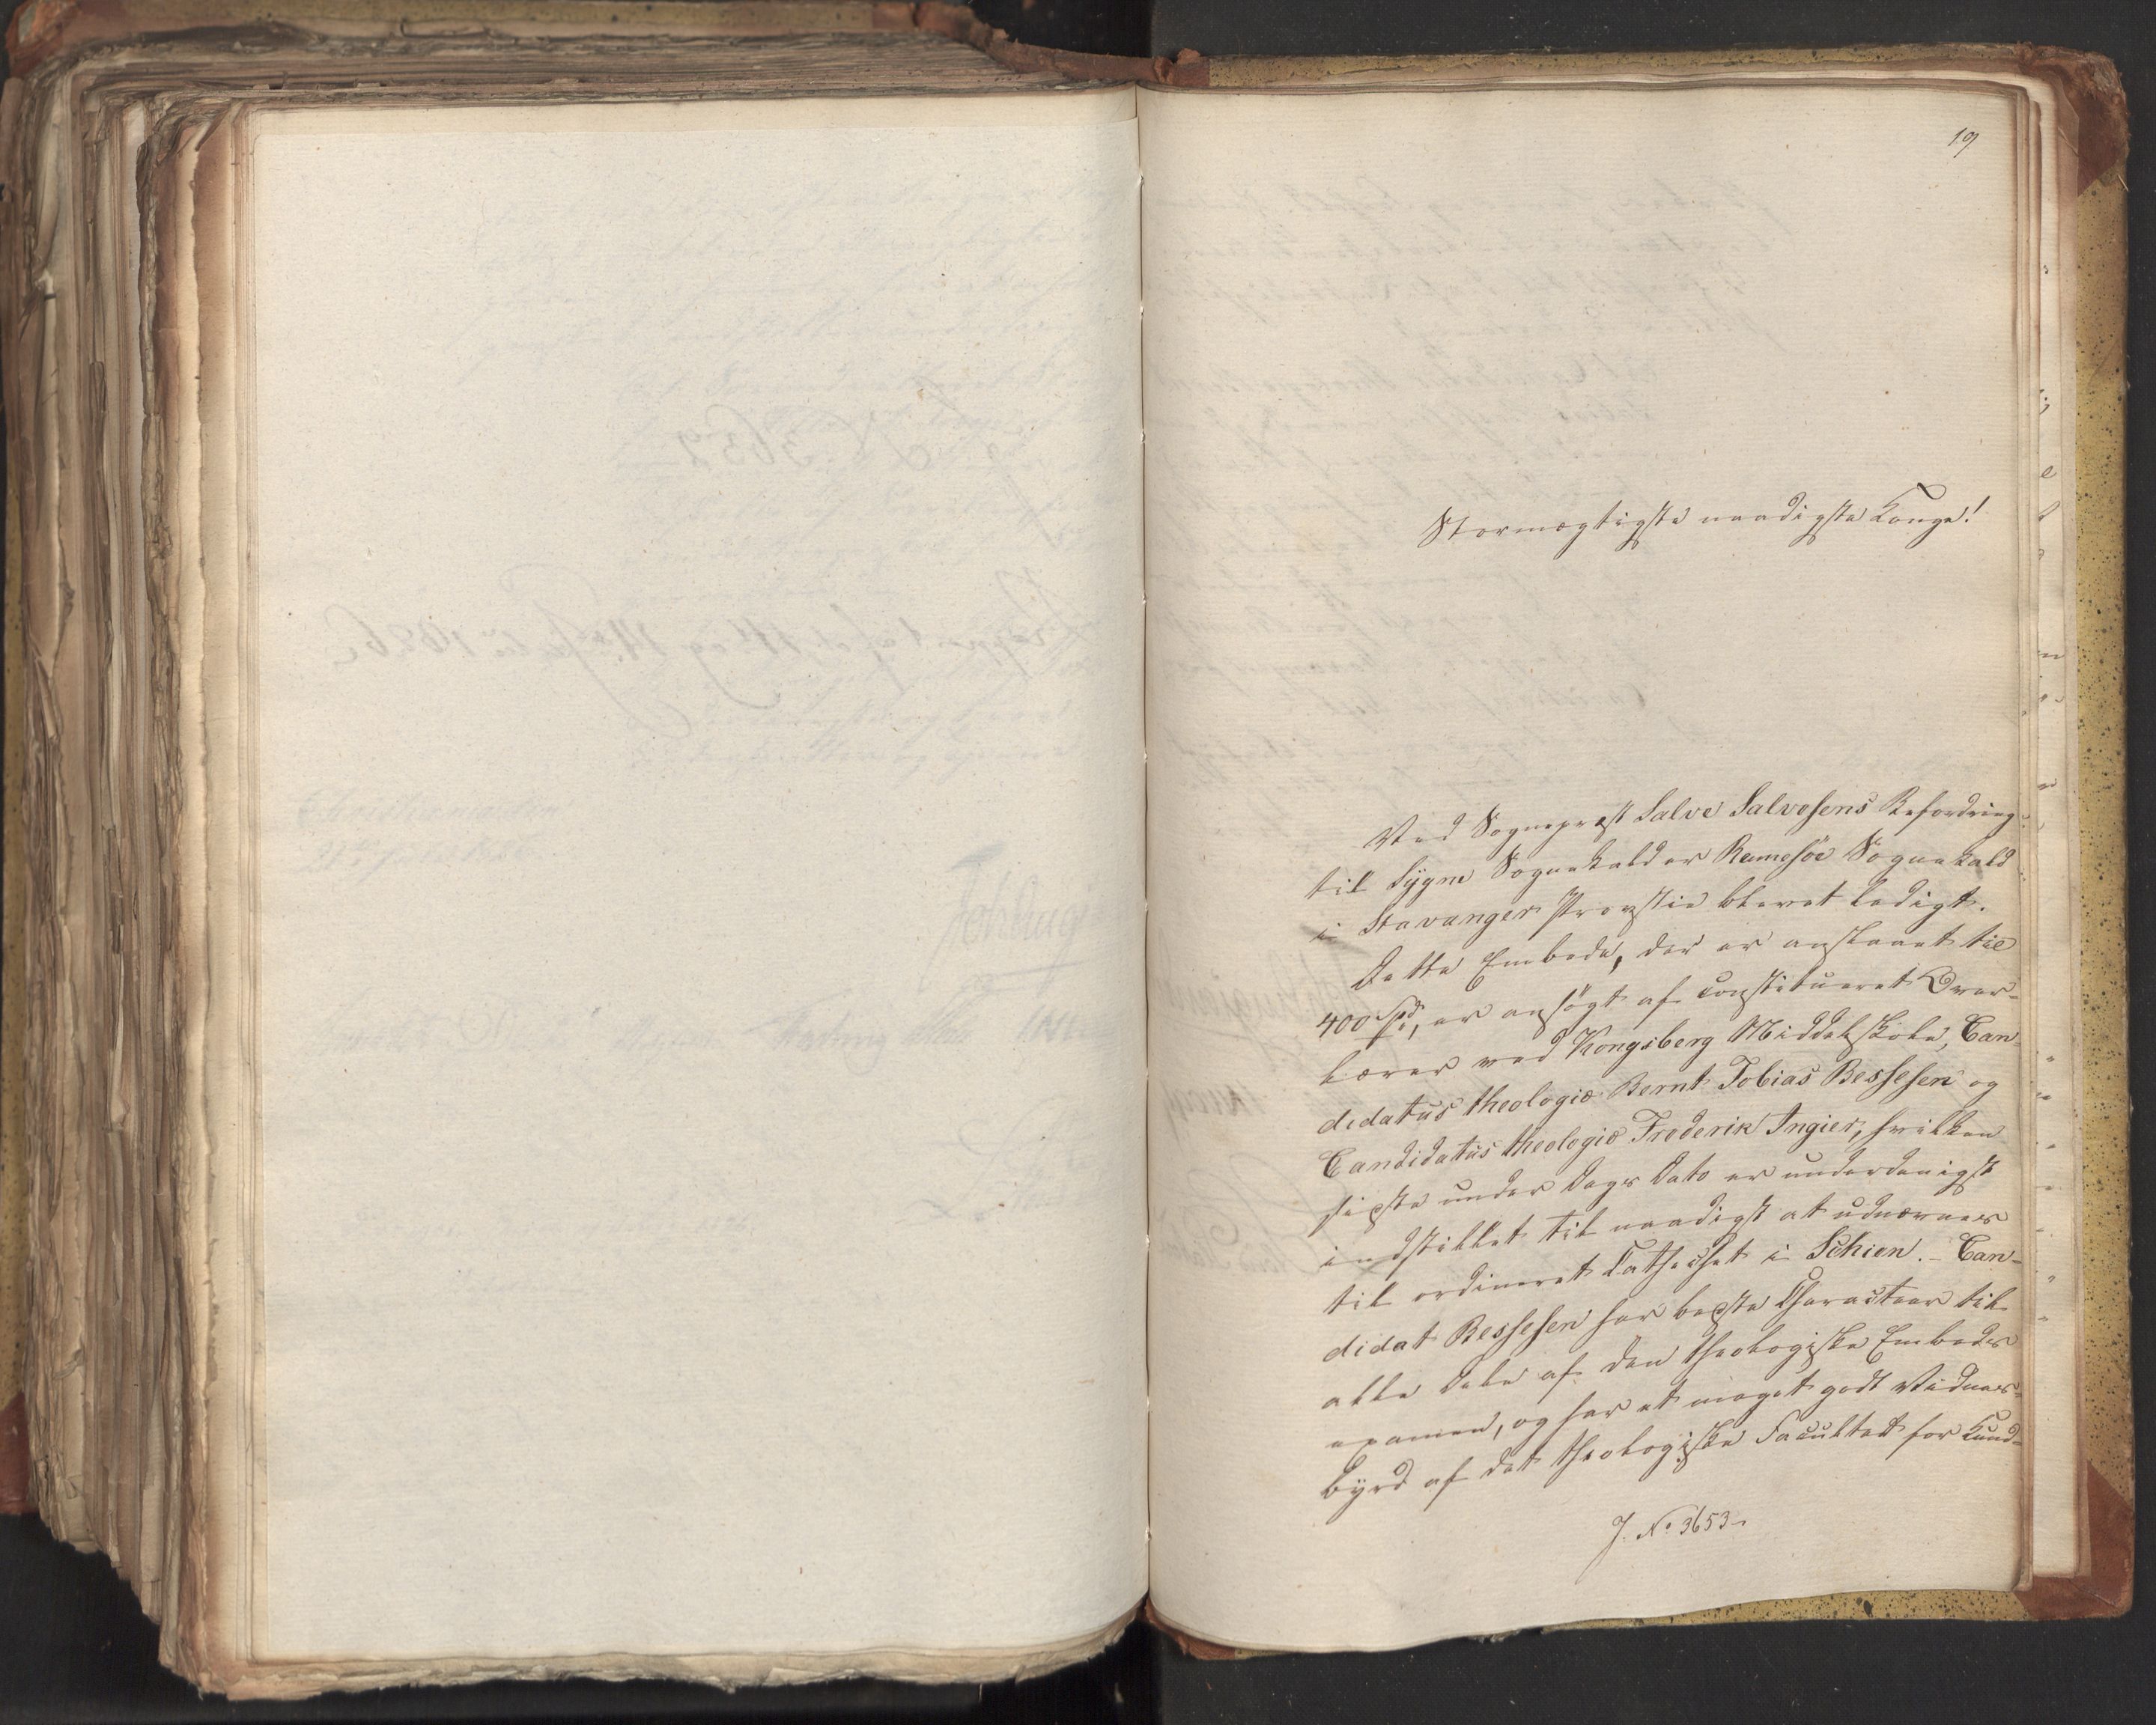 19
Stormægtigste naadigste Konge!
Ved Sogneprest Salve Salvesens Befordring
til Sygne Sognekald er Rennesöe Sognekald
i Stavanger Provstie blevet ledigt.
Dette Embede, der er anslaaet til
400 Spd, er ansögt af constitueret Over-
lærer ved Kongsberg Middelskole, Can-
didatus theologiæ Bernt Tobias Bessesen og
Candidatus theologiæ Frederik Ingier, hvilken
sidste under Dags Dato er underdanigst
indstillet til naadigst at udnævnes
til ordineret Cathechet i Schien. - Can-
didat Bessesen har bedste Characteer til
alle Dele af den theologiske Embeds
examen, og har et meget godt Vidnes-
byrd af det theologiske Facultet for Kund-
J. No 3653